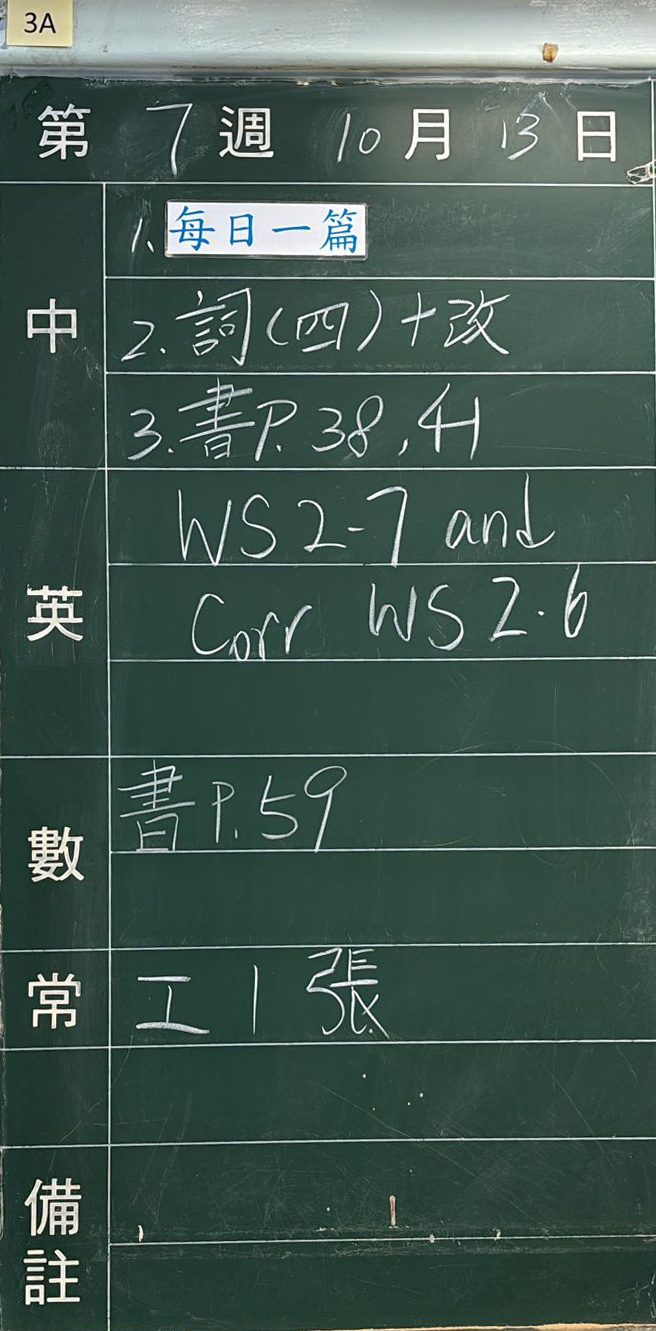 3A
第 7 週 10 月 13 日
中
1. 每日一篇
2. 詞(四)+改
3. 書P. 38, 41
英
WS 2-7 and
Corr WS 2.6
數
書P. 59
常
工 1 張
備註